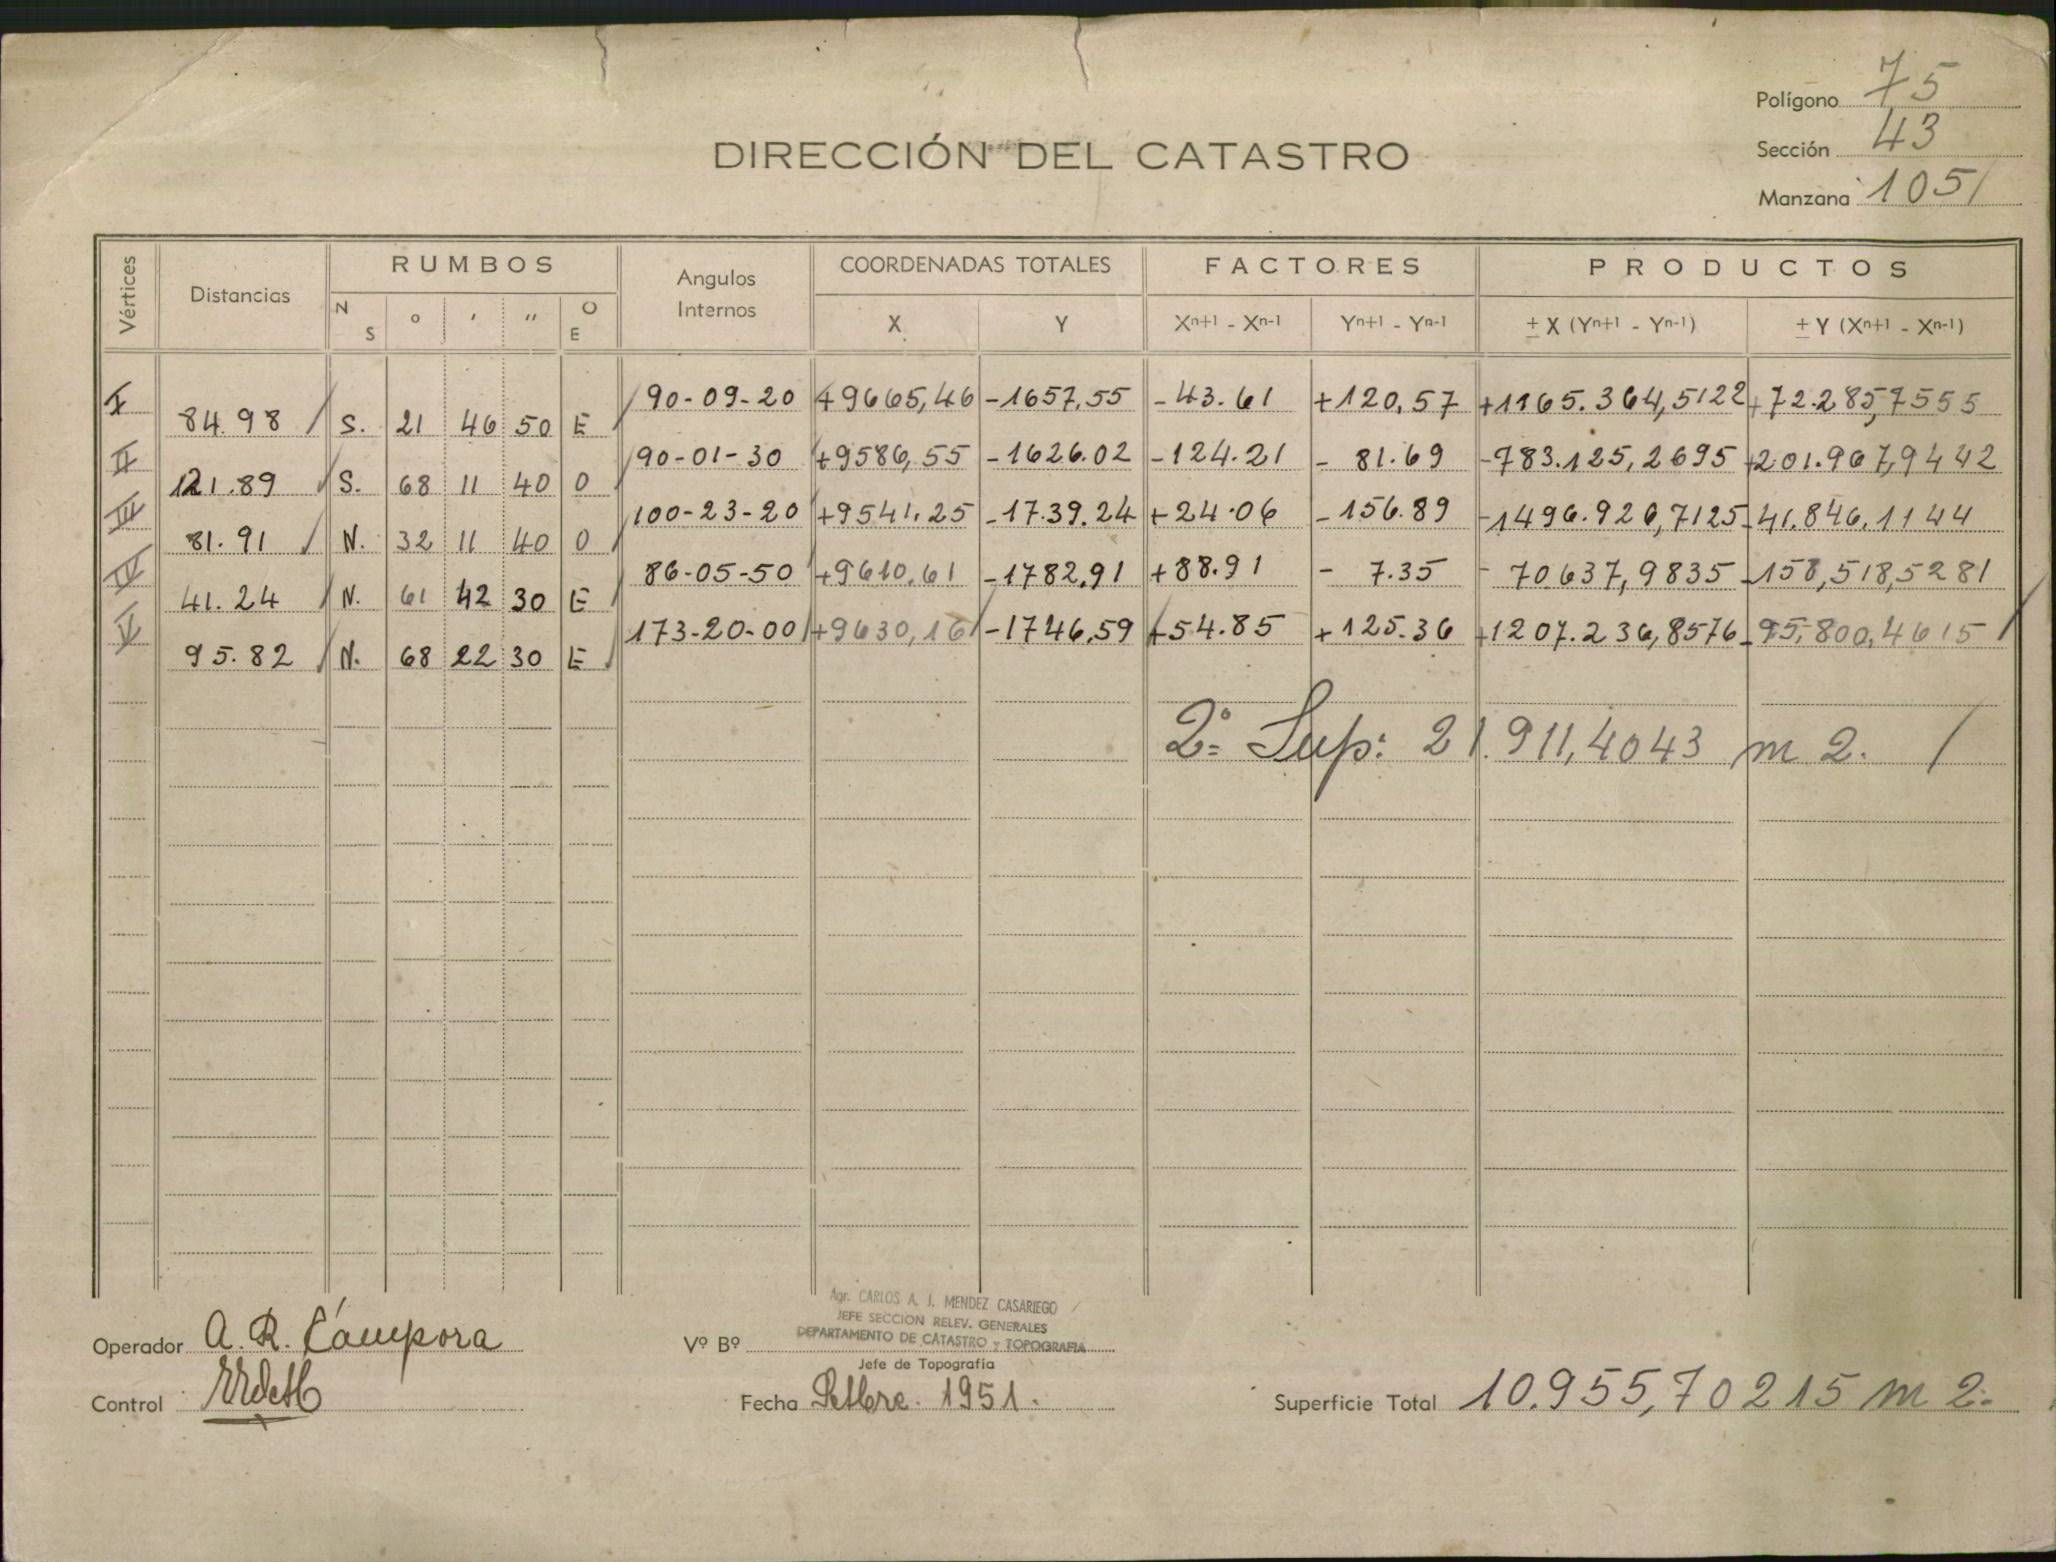 Polígono 75
Sección 43
Manzana 105
DIRECCIÓN DEL CATASTRO
Vértices Distancias RUMBOS Angulos Internos COORDENADAS TOTALES FACTORES PRODUCTOS
N S ° ' '' O E X Y Xn+1 - Xn-1 Yn+1 - Yn-1 ± X (Yn+1 - Yn-1) ± Y (Xn+1 - Xn-1)
I 90-09-20 +9665,46 -1657,55 -43.61 +120,57 +1165.364,5122 +72.285,7555
84.98 S. 21 46 50 E
II 90-01-30 +9586,55 -1626.02 -124.21 - 81.69 -783.125,2695 +201.967,9442
121.89 S. 68 11 40 O
III 100-23-20 +9541.25 -1739.24 +24.06 -156.89 -1496.926,7125 -41.846,1144
81.91 N. 32 11 40 O
IV 86-05-50 +9610,61 -1782,91 +88.91 - 7.35 - 70637,9835 -158,518,5281
41.24 N. 61 42 30 E
V 173-20-00 +9630,16 -1746,59 +54.85 +125.36 +1207.236,8576 -95,800,4615
95.82 N. 68 22 30 E
2º Sup: 21.911,4043 m 2.
Agr. CARLOS A. J. MENDEZ CASARIEGO
JEFE SECCION RELEV. GENERALES
DEPARTAMENTO DE CATASTRO Y TOPOGRAFIA
Operador A. R. Cámpora Vº Bº
Jefe de Topografía
Control Fecha Setbre. 1951. Superficie Total 10.955,70215 m 2.